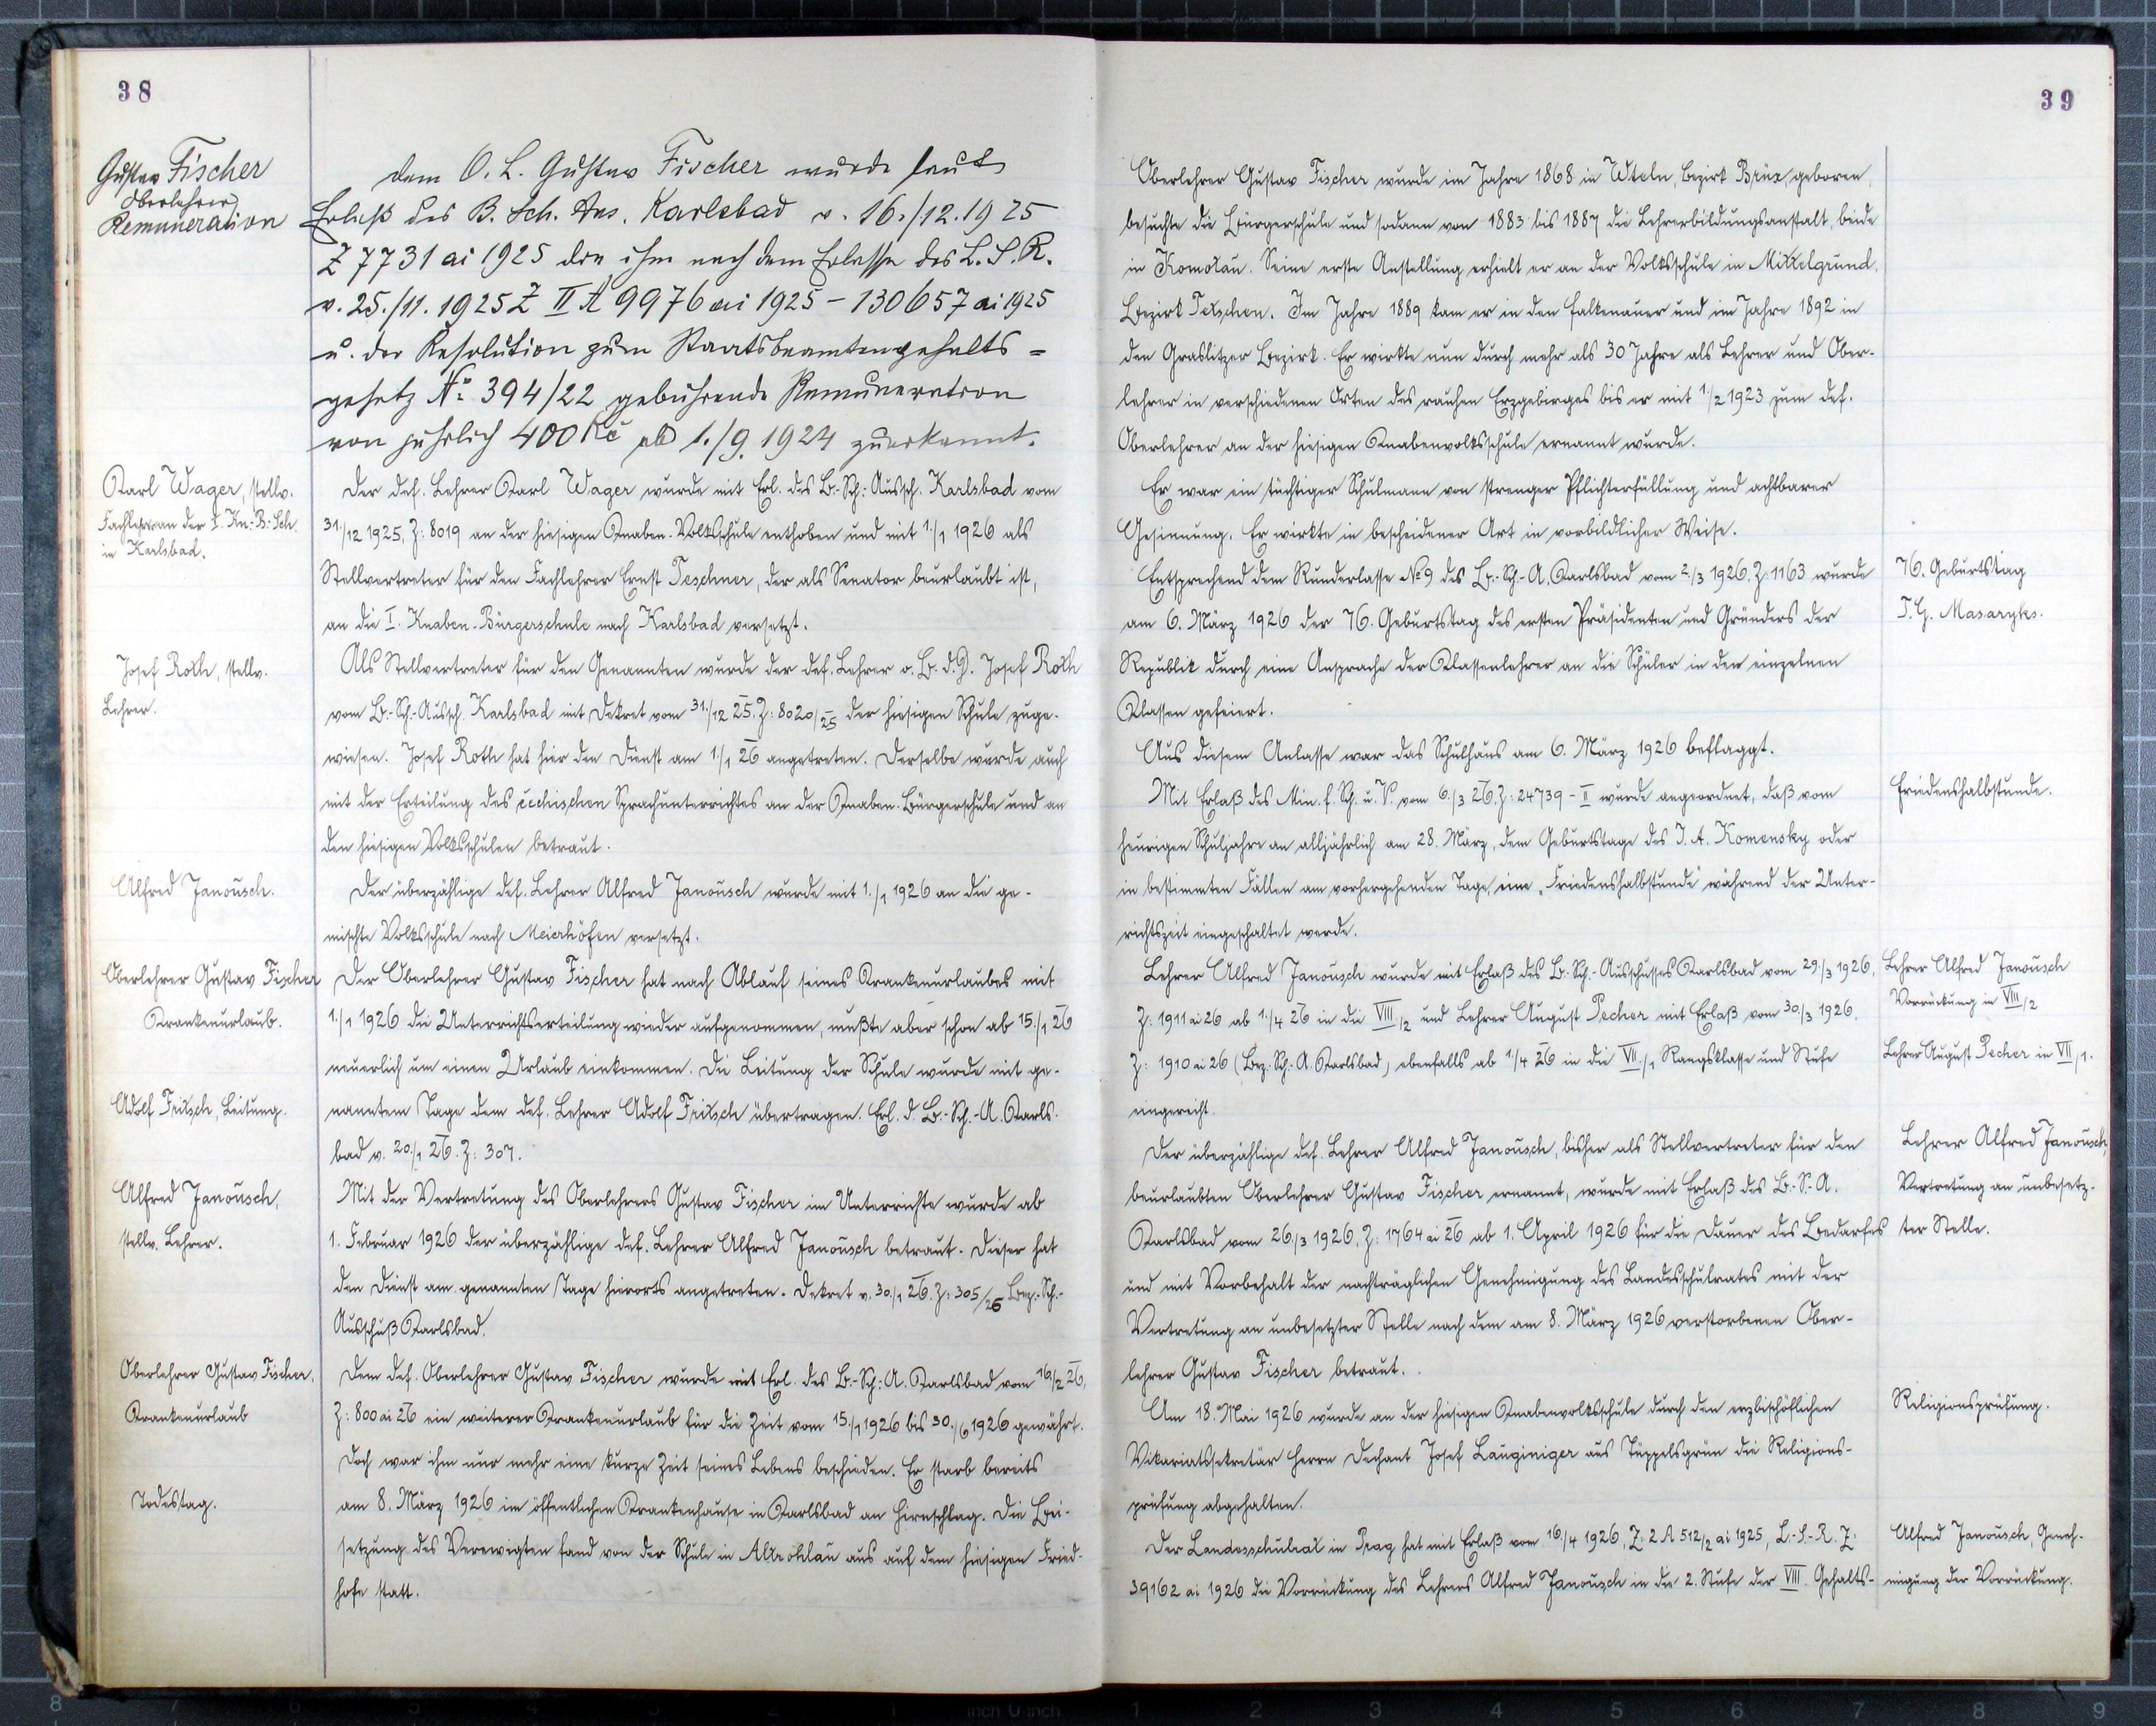 38
Gustav Fischer
Oberlehrer
Remuneration
Dem O. L. Gustav Fischer wurde laut
Erlaß des B. Sch. Aus. Karlsbad v. 16./12.1925
Z 7731 ai 1925 die ihm nach dem Erlasse des L. S. R.
v. 25./11. 1925 Z II A 9976 ai 1925 – 130657 ai 1925
u. der Resolution zum Staatsbeamtengehalts=
gesetz No 394/22 gebührende Remuneration
von jährlich 400 Kč ab 1./9. 1924 zuerkannt.
Karl Wager, stellv.
Fachlehrer an der I. Kn.-B.-Sch.
in Karlsbad.
Der def. Lehrer Karl Wager wurde mit Erl. des B.-Sch.-Aussch. Karlsbad vom
31./12 1925, Z: 8019 an der hiesigen Knaben-Volksschule enthoben und mit 1./1 1926 als
Stellvertreter für den Fachlehrer Ernst Teschner, der als Senator beurlaubt ist,
an die I. Knaben-Bürgerschule nach Karlsbad versetzt.
Josef Roth, stellv.
Lehrer.
Als Stellvertreter für den Genannten wurde der def. Lehrer o. B. d. D. Josef Roth
vom B.-Sch.-Aussch. Karlsbad mit Dekret vom 31./12 25. Z: 8020/25 der hiesigen Schule zuge-
wiesen. Josef Roth hat hier den Dienst am 1./1 26 angetreten. Derselbe wurde auch
mit der Erteilung des čechischen Sprachunterrichtes an der Knaben-Bürgerschule und an
den hiesigen Volksschulen betraut.
Alfred Janousch.
Der überzählige def. Lehrer Alfred Janousch wurde mit 1./1 1926 an die ge-
mischte Volksschule nach Meierhöfen versetzt.
Oberlehrer Gustav Fischer
Krankenurlaub.
Der Oberlehrer Gustav Fischer hat nach Ablauf seines Krankenurlaubes mit
1./1 1926 die Unterrichtserteilung wieder aufgenommen, mußte aber schon ab 15./1 26
neuerlich um einen Urlaub einkommen. Die Leitung der Schule wurde mit ge-
Adolf Fritsch, Leitung.
nanntem Tage dem def. Lehrer Adolf Fritsch übertragen. Erl. d. B.-Sch.-A. Karls-
bad v. 20./1 26. Z: 307.
Alfred Janousch,
stellv. Lehrer.
Mit der Vertretung des Oberlehrers Gustav Fischer im Unterrichte wurde ab
1. Februar 1926 der überzählige def. Lehrer Alfred Janousch betraut. Dieser hat
den Dienst am genannten Tage hierorts angetreten. Dekret v. 30./1 26. Z: 305/26 Bez.-Sch.-
Ausschuß Karlsbad.
Oberlehrer Gustav Fischer,
Krankenurlaub
Dem def. Oberlehrer Gustav Fischer wurde mit Erl. des B.-Sch.-A. Karlsbad vom 16/2 26,
Z: 800 ai 26 ein weiterer Krankenurlaub für die Zeit vom 15./1 1926 bis 30./6 1926 gewährt.
Doch war ihm nur mehr eine kurze Zeit seines Lebens beschieden. Er starb bereits
Todestag.
am 8. März 1926 im öffentlichen Krankenhause in Karlsbad an Hirnschlag. Die Bei-
setzung des Verewigten fand von der Schule in Altrohlau aus auf dem hiesigen Fried-
hofe statt.
39
Oberlehrer Gustav Fischer wurde im Jahre 1868 in Wteln, Bezirk Brüx, geboren,
besuchte die Bürgerschule und sodann von 1883 bis 1887 die Lehrerbildungsanstalt, beide
in Komotau. Seine erste Anstellung erhielt er an der Volksschule in Mittelgrund,
Bezirk Tetschen. Im Jahre 1889 kam er in den Falkenauer und im Jahre 1892 in
den Graslitzer Bezirk. Er wirkte nun durch mehr als 30 Jahre als Lehrer und Ober-
lehrer in verschiedenen Orten des rauhen Erzgebirges bis er mit 1./2 1923 zum def.
Oberlehrer an der hiesigen Knabenvolksschule ernannt wurde.
Er war ein tüchtiger Schulmann von strenger Pflichterfüllung und achtbarer
Gesinnung. Er wirkte in bescheidener Art in vorbildlicher Weise.
Entsprechend dem Runderlasse No 9 des B.-Sch.-A. Karlsbad vom 2./3 1926. Z: 1163 wurde
am 6. März 1926 der 76. Geburtstag des ersten Präsidenten und Gründers der
Republik durch eine Ansprache der Klassenlehrer an die Schüler in den einzelnen
Klassen gefeiert.
76. Geburtstag
T. G. Masarykes.
Aus diesem Anlasse war das Schulhaus am 6. März 1926 beflaggt.
Mit Erlaß des Min. f. Sch. u. V. vom 6./3 26. Z: 24739 – II wurde angeordnet, daß vom
heurigen Schuljahre an alljährlich am 28. März, dem Geburtstage des J. A. Komensky oder
in bestimmten Fällen am vorhergehenden Tage, eine „Friedenshalbstunde“ während der Unter-
richtszeit eingeschaltet werde.
Friedenshalbstunde.
Lehrer Alfred Janousch wurde mit Erlaß des B.-Sch.-Ausschusses Karlsbad vom 29./3 1926,
Z: 1911 ai 26 ab 1./4 26 in die VIII./2 und Lehrer August Pecher mit Erlaß vom 30./3 1926,
Z: 1910 ai 26 (Bez.-Sch.-A. Karlsbad) ebenfalls ab 1/4 26 in die VII./1 Rangsklasse und Stufe
eingereiht.
Lehrer Alfred Janousch
Vorrückung in VIII/2
Lehrer August Pecher in VII/1.
Der überzählige def. Lehrer Alfred Janousch, bisher als Stellvertreter für den
beurlaubten Oberlehrer Gustav Fischer ernannt, wurde mit Erlaß des B.-S.-A.
Karlsbad vom 26./3 1926, Z: 1764 ai 26 ab 1. April 1926 für die Dauer des Bedarfes
und mit Vorbehalt der nachträglichen Genehmigung des Landesschulrates mit der
Vertretung an unbesetzter Stelle nach dem am 8. März 1926 verstorbenen Ober-
lehrer Gustav Fischer betraut.
Lehrer Alfred Janousch,
Vertretung an unbesetz-
ter Stelle.
Am 18. Mai 1926 wurde an der hiesigen Knabenvolksschule durch den erzbischöflichen
Vikariatssekretär Herrn Dechant Josef Lauginiger aus Tüppelsgrün die Religions-
prüfung abgehalten.
Religionsprüfung.
Der Landesschulrat in Prag hat mit Erlaß vom 16/4 1926, Z: 2 A 512/2 ai 1925, L.-S.-R. Z:
39162 ai 1926 die Vorrückung des Lehrers Alfred Janousch in die 2. Stufe der VIII. Gehalts-
Alfred Janousch, Geneh-
migung der Vorrückung.